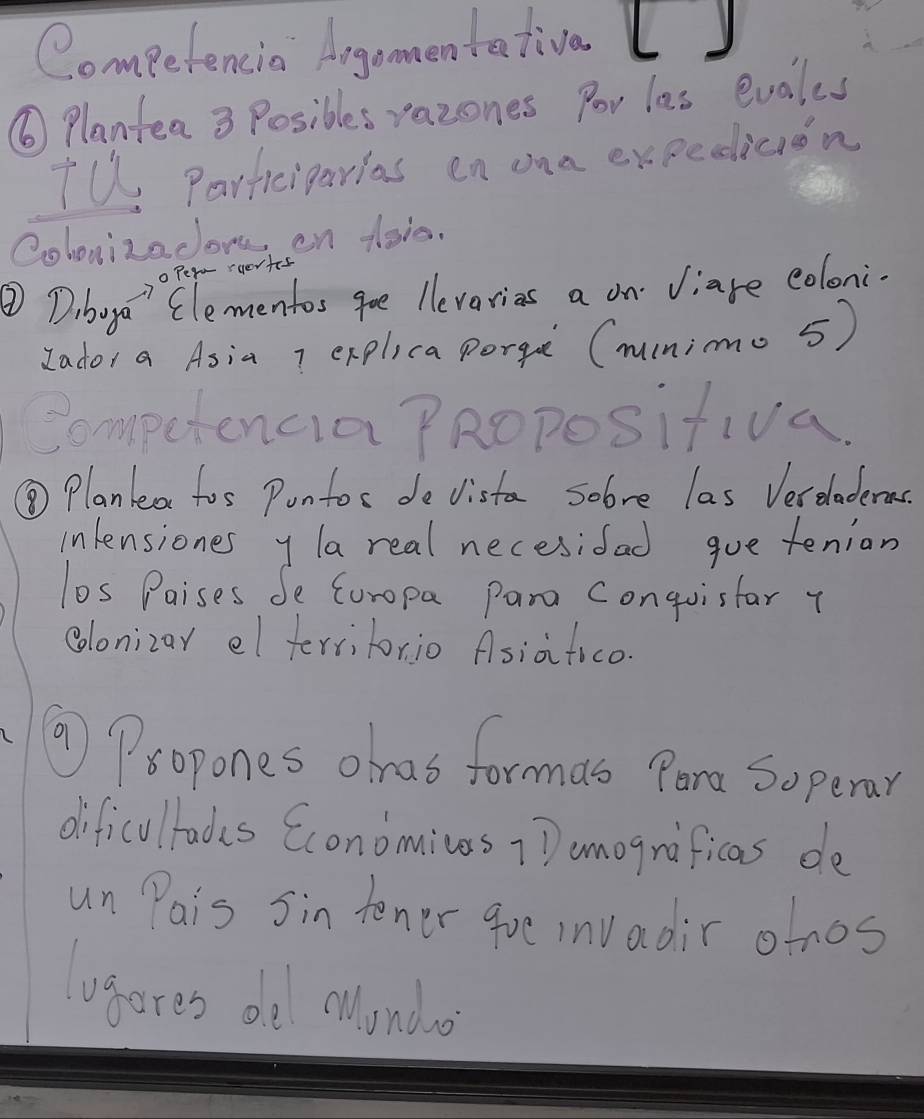 Competencia Argomentativa []
⑥ Plantea 3 Posibles razones Por las cuáles
TÚ Participarías en una expedición
Colonizadora en Asia.
o Pega recortes
⑦ Dibuja → Elementos que llevarias a un viaje coloni-
zador a Asia y explica porqué (minimo 5)
Competencia PROPOSitiva.
⑧ Plantea tus Puntos de vista sobre las Verdaderas
intensiones y la real necesidad que tenían
los Paises de Europa Para Conquistar y
Colonizar el territorio Asiático.
⑨ Propones otras formas Para Superar
dificultades Económicas y Demográficas de
un Pais sin tener que invadir otros
lugares del Mundo